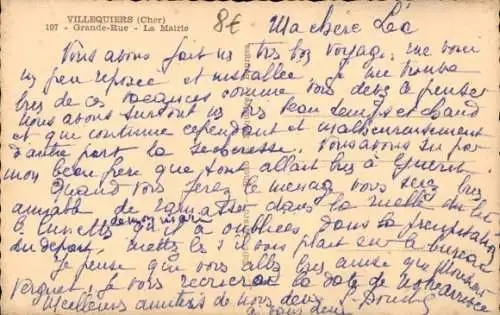 VILLEQUIERS (Cher)
107 - Grande-Rue - La Mairie
8€
Ma chère Léa
Nous avons fait un très bon voyage, me voici
un peu reposée et installée je me trouve
bien de ces vacances comme vous devez le penser
nous avons surtout un très beau temps et chaud
et qui continue cependant et malheureusement
d'autre part la sécheresse. Nous avons su par
mon beau frère que tout allait bien à
Quand vous ferez le ménage vous serez bien
aimable de ramasser dans la
lunettes de mon mari qu'il a oubliées dans la précipitation
du départ mettez les s'il vous plait sur le bureau
Je pense que vous allez bien ainsi que Monsieur
Verguet, je vous écrirai la date de notre arrivée
Meilleures amitiés de nous deux
à vous deux